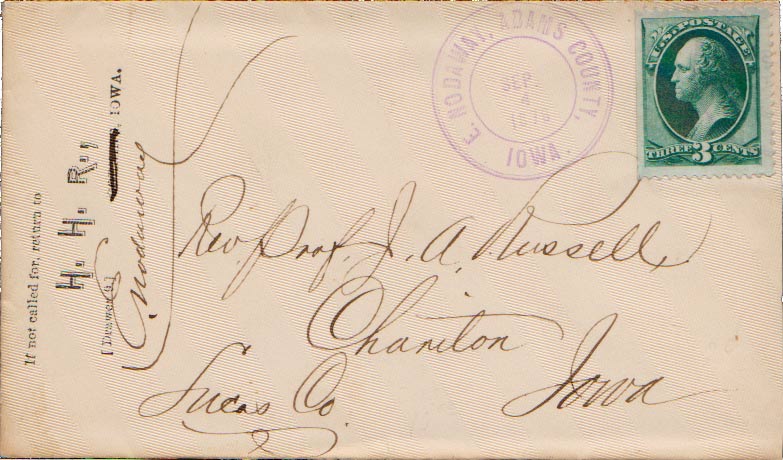 If not called for, return to
H. H. R.,
[Drawer 4.] IOWA.
E. Nodaway
E. NODAWAY, ADAMS COUNTY,
SEP.
4
1878
IOWA.
U.S. POSTAGE
THREE 3 CENTS
Rev. Prof. J. A. Russell,
Chariton
Lucas Co. Iowa